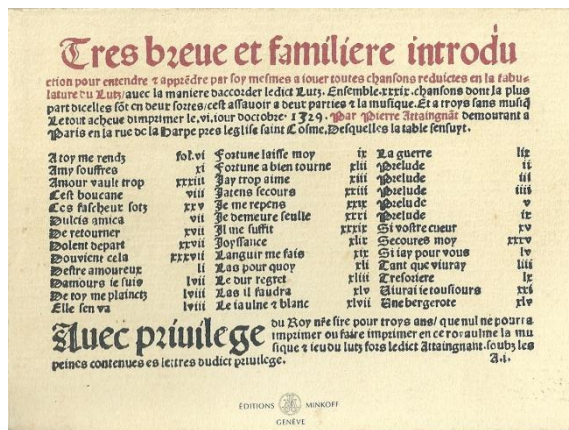 Tres breue et familiere introdu
ction pour entendre ⁊ apprẽdre par soy mesmes a iouer toutes chansons reduictes en la tabu-
lature du Lutz/auec la maniere daccorder ledict Lutz. Ensemble.xxxix.chansons dont la plus
part dicelles sõt en deux sortes/cest assauoir a deux parties ⁊ la musique. Et a troys sans musiq̃
Le tout acheue dimprimer le.vi.iour doctobre. 1529. Par Pierre Attaingnãt demourant a
Paris en la rue de la Harpe pres leglise saint Cosme. Desquelles la table sensuyt.
A toy me rendz fol.vi
Amy souffres xi
Amour vault trop xxxiii
Cest boucane viii
Ces fascheux sotz xxv
Dulcis amica vii
De retourner xvii
Dolent depart xxvii
Douuient cela xxxvii
Destre amoureux li
Damours ie suis lvii
De toy me plainctz lviii
Elle sen va lviii
Fortune laisse moy ix
Fortune a bien tourne xlii
Jay trop aime xiii
Jatens secours xxiii
Je me repens xxix
Je demeure seulle xxxi
Il me suffit xxxix
Joyssance xlix
Languir me fais xix
Las pour quoy xli
Le dur regret xliii
Las il faudra xlv
Le iaulne ⁊ blanc xlvii
La guerre lix
Prelude ii
Prelude iii
Prelude iiii
Prelude v
Prelude ix
Si vostre cueur xv
Secoures moy xxxv
Si iay pour vous lv
Tant que viuray liii
Tresoriere lx
Viurai ie tousiours xxi
Une bergerote xlv
Auec priuilege du Roy nr̃e sire pour troys ans/ que nul ne pourra
imprimer ou faire imprimer en ce royaulme la mu
sique ⁊ ieu du lutz fors ledict Attaingnant. soubz les
peines contenues es lettres dudict priuilege. A.i.
ÉDITIONS MINKOFF
GENÈVE